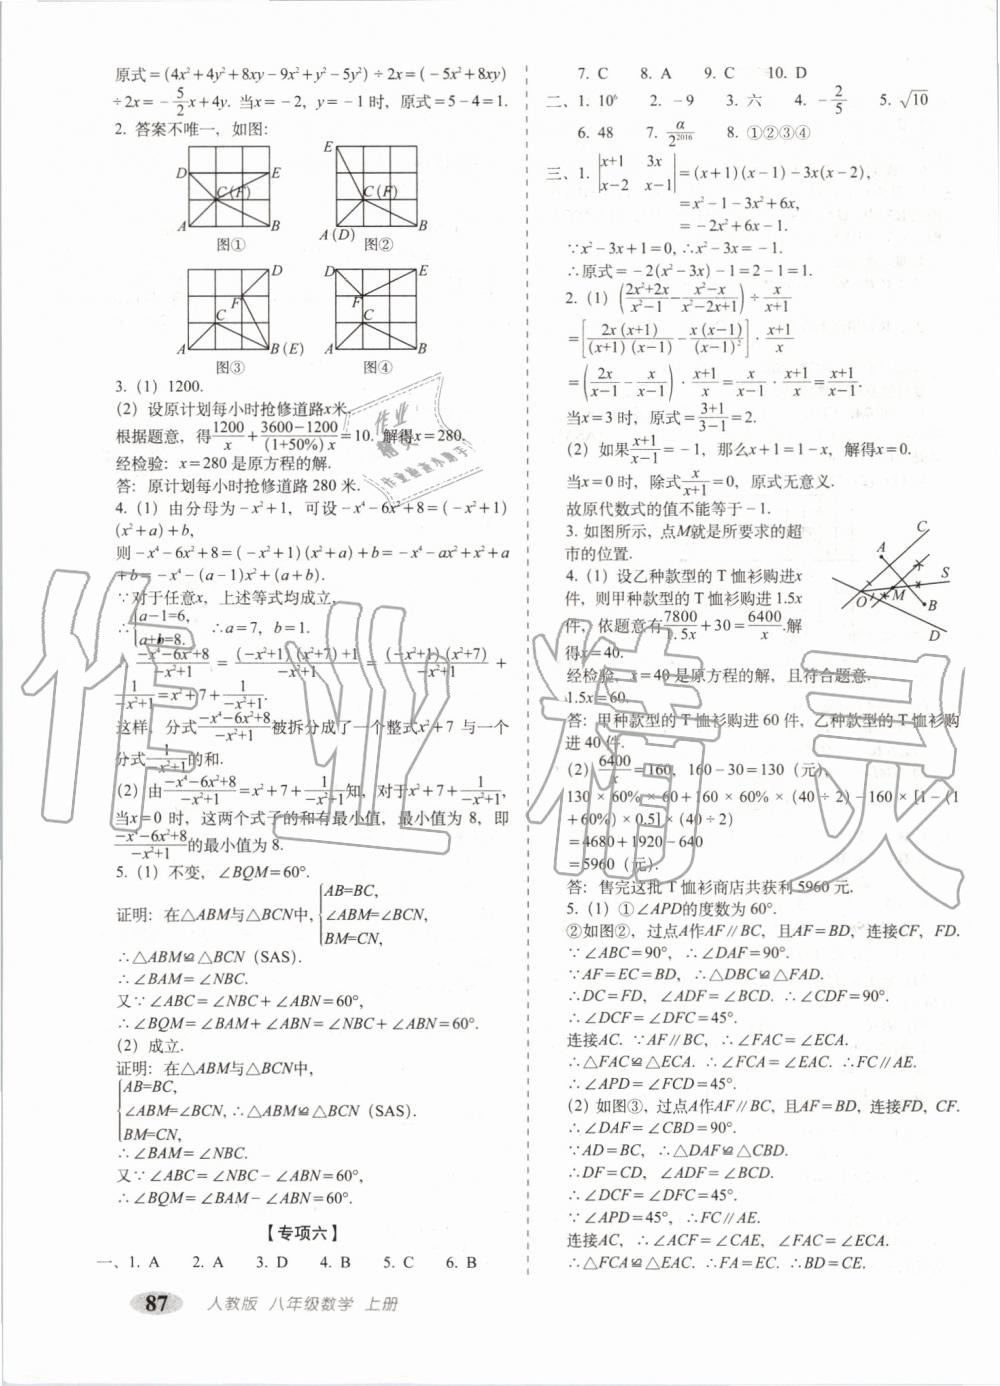 原式=(4x²+4y²+8xy-9x²+y²-5y²)÷2x=(-5x²+8xy)
÷2x=-5/2x+4y. 当x=-2，y=-1时，原式=5-4=1.
2. 答案不唯一，如图:
D E C(F) A B 图①
E C(F) A(D) B 图②
D F C A B(E) 图③
D E F C A B 图④
3.（1）1200.
（2）设原计划每小时抢修道路x米.
根据题意，得1200/x+(3600-1200)/((1+50%)x)=10. 解得x=280.
经检验：x=280是原方程的解.
答：原计划每小时抢修道路280米.
4.（1）由分母为-x²+1，可设-x⁴-6x²+8=(-x²+1)
(x²+a)+b,
则-x⁴-6x²+8=(-x²+1)(x²+a)+b=-x⁴-ax²+x²+a
+b=-x⁴-(a-1)x²+(a+b).
∵对于任意x，上述等式均成立，
∴{a-1=6, a+b=8. ∴a=7，b=1.
(-x⁴-6x²+8)/(-x²+1)=((-x²+1)(x²+7)+1)/(-x²+1)=((-x²+1)(x²+7))/(-x²+1)+
1/(-x²+1)=x²+7+1/(-x²+1).
这样，分式(-x⁴-6x²+8)/(-x²+1)被拆分成了一个整式x²+7与一个
分式1/(-x²+1)的和.
（2）由(-x⁴-6x²+8)/(-x²+1)=x²+7+1/(-x²+1)知，对于x²+7+1/(-x²+1),
当x=0时，这两个式子的和有最小值，最小值为8，即
(-x⁴-6x²+8)/(-x²+1)的最小值为8.
5.（1）不变，∠BQM=60°.
证明：在△ABM与△BCN中，{AB=BC, ∠ABM=∠BCN, BM=CN,
∴△ABM≌△BCN（SAS）.
∴∠BAM=∠NBC.
又∵∠ABC=∠NBC+∠ABN=60°,
∴∠BQM=∠BAM+∠ABN=∠NBC+∠ABN=60°.
（2）成立.
证明：在△ABM与△BCN中，
{AB=BC, ∠ABM=∠BCN, BM=CN, ∴△ABM≌△BCN（SAS）.
∴∠BAM=∠NBC.
又∵∠ABC=∠NBC-∠ABN=60°,
∴∠BQM=∠BAM-∠ABN=60°.
【专项六】
一、1. A 2. A 3. D 4. B 5. C 6. B
7. C 8. A 9. C 10. D
二、1. 10⁶ 2. -9 3. 六 4. -2/5 5. √10
6. 48 7. α/2²⁰¹⁶ 8. ①②③④
三、1. |x+1 3x; x-2 x-1|=(x+1)(x-1)-3x(x-2),
=x²-1-3x²+6x,
=-2x²+6x-1.
∵x²-3x+1=0, ∴x²-3x=-1.
∴原式=-2(x²-3x)-1=2-1=1.
2.（1）((2x²+2x)/(x²-1)-(x²-x)/(x²-2x+1))÷x/(x+1)
=[2x(x+1)/((x+1)(x-1))-x(x-1)/(x-1)²]·(x+1)/x
=(2x/(x-1)-x/(x-1))·(x+1)/x=x/(x-1)·(x+1)/x=(x+1)/(x-1).
当x=3时，原式=(3+1)/(3-1)=2.
（2）如果(x+1)/(x-1)=-1，那么x+1=1-x，解得x=0.
当x=0时，除式x/(x+1)=0，原式无意义.
故原代数式的值不能等于-1.
3. 如图所示，点M就是所要求的超
市的位置.
C A S O M B D
4.（1）设乙种款型的T恤衫购进x
件，则甲种款型的T恤衫购进1.5x
件，依题意有7800/1.5x+30=6400/x.解
得x=40.
经检验，x=40是原方程的解，且符合题意.
1.5x=60.
答：甲种款型的T恤衫购进60件，乙种款型的T恤衫购
进40件.
（2）6400/x=160，160-30=130（元），
130×60%×60+160×60%×(40÷2)-160×[1-(1
+60%)×0.5]×(40÷2)
=4680+1920-640
=5960（元）.
答：售完这批T恤衫商店共获利5960元.
5.（1）①∠APD的度数为60°.
②如图②，过点A作AF∥BC，且AF=BD，连接CF，FD.
∵∠ABC=90°，∴∠DAF=90°.
∵AF=EC=BD，∴△DBC≌△FAD.
∴DC=FD，∠ADF=∠BCD. ∴∠CDF=90°.
∴∠DCF=∠DFC=45°.
连接AC. ∵AF∥BC，∴∠FAC=∠ECA.
∴△FAC≌△ECA. ∴∠FCA=∠EAC. ∴FC∥AE.
∴∠APD=∠FCD=45°.
（2）如图③，过点A作AF∥BC，且AF=BD，连接FD，CF.
∴∠DAF=∠CBD=90°.
∵AD=BC，∴△DAF≌△CBD.
∴DF=CD，∠ADF=∠BCD.
∴∠DCF=∠DFC=45°.
∵∠APD=45°，∴FC∥AE.
连接AC，∴∠ACF=∠CAE，∠FAC=∠ECA.
∴△FCA≌△EAC. ∴FA=EC. ∴BD=CE.
87 人教版 八年级数学 上册
作业精灵